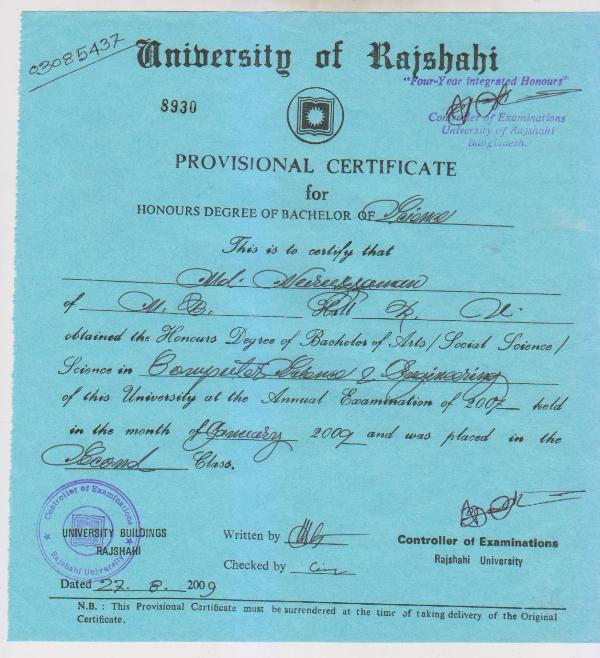 03085437
University of Rajshahi
"Four-Year integrated Honours"
8930
Controller of Examinations
University of Rajshahi
Bangladesh.
PROVISIONAL CERTIFICATE
for
HONOURS DEGREE OF BACHELOR OF Science
This is to certify that
Md.
of M. B. Hall R. U.
obtained the Honours Degree of Bachelor of Arts/Social Science/
Science in Computer Science & Engineering
of this University at the Annual Examination of 2007 held
in the month of January 2009 and was placed in the
Second Class.
Controller of Examinations
Rajshahi University
UNIVERSITY BUILDINGS
RAJSHAHI
Written by
Checked by
Controller of Examinations
Rajshahi University
Dated 27. 8. 2009
N.B. : This Provisional Certificate must be surrendered at the time of taking delivery of the Original
Certificate.